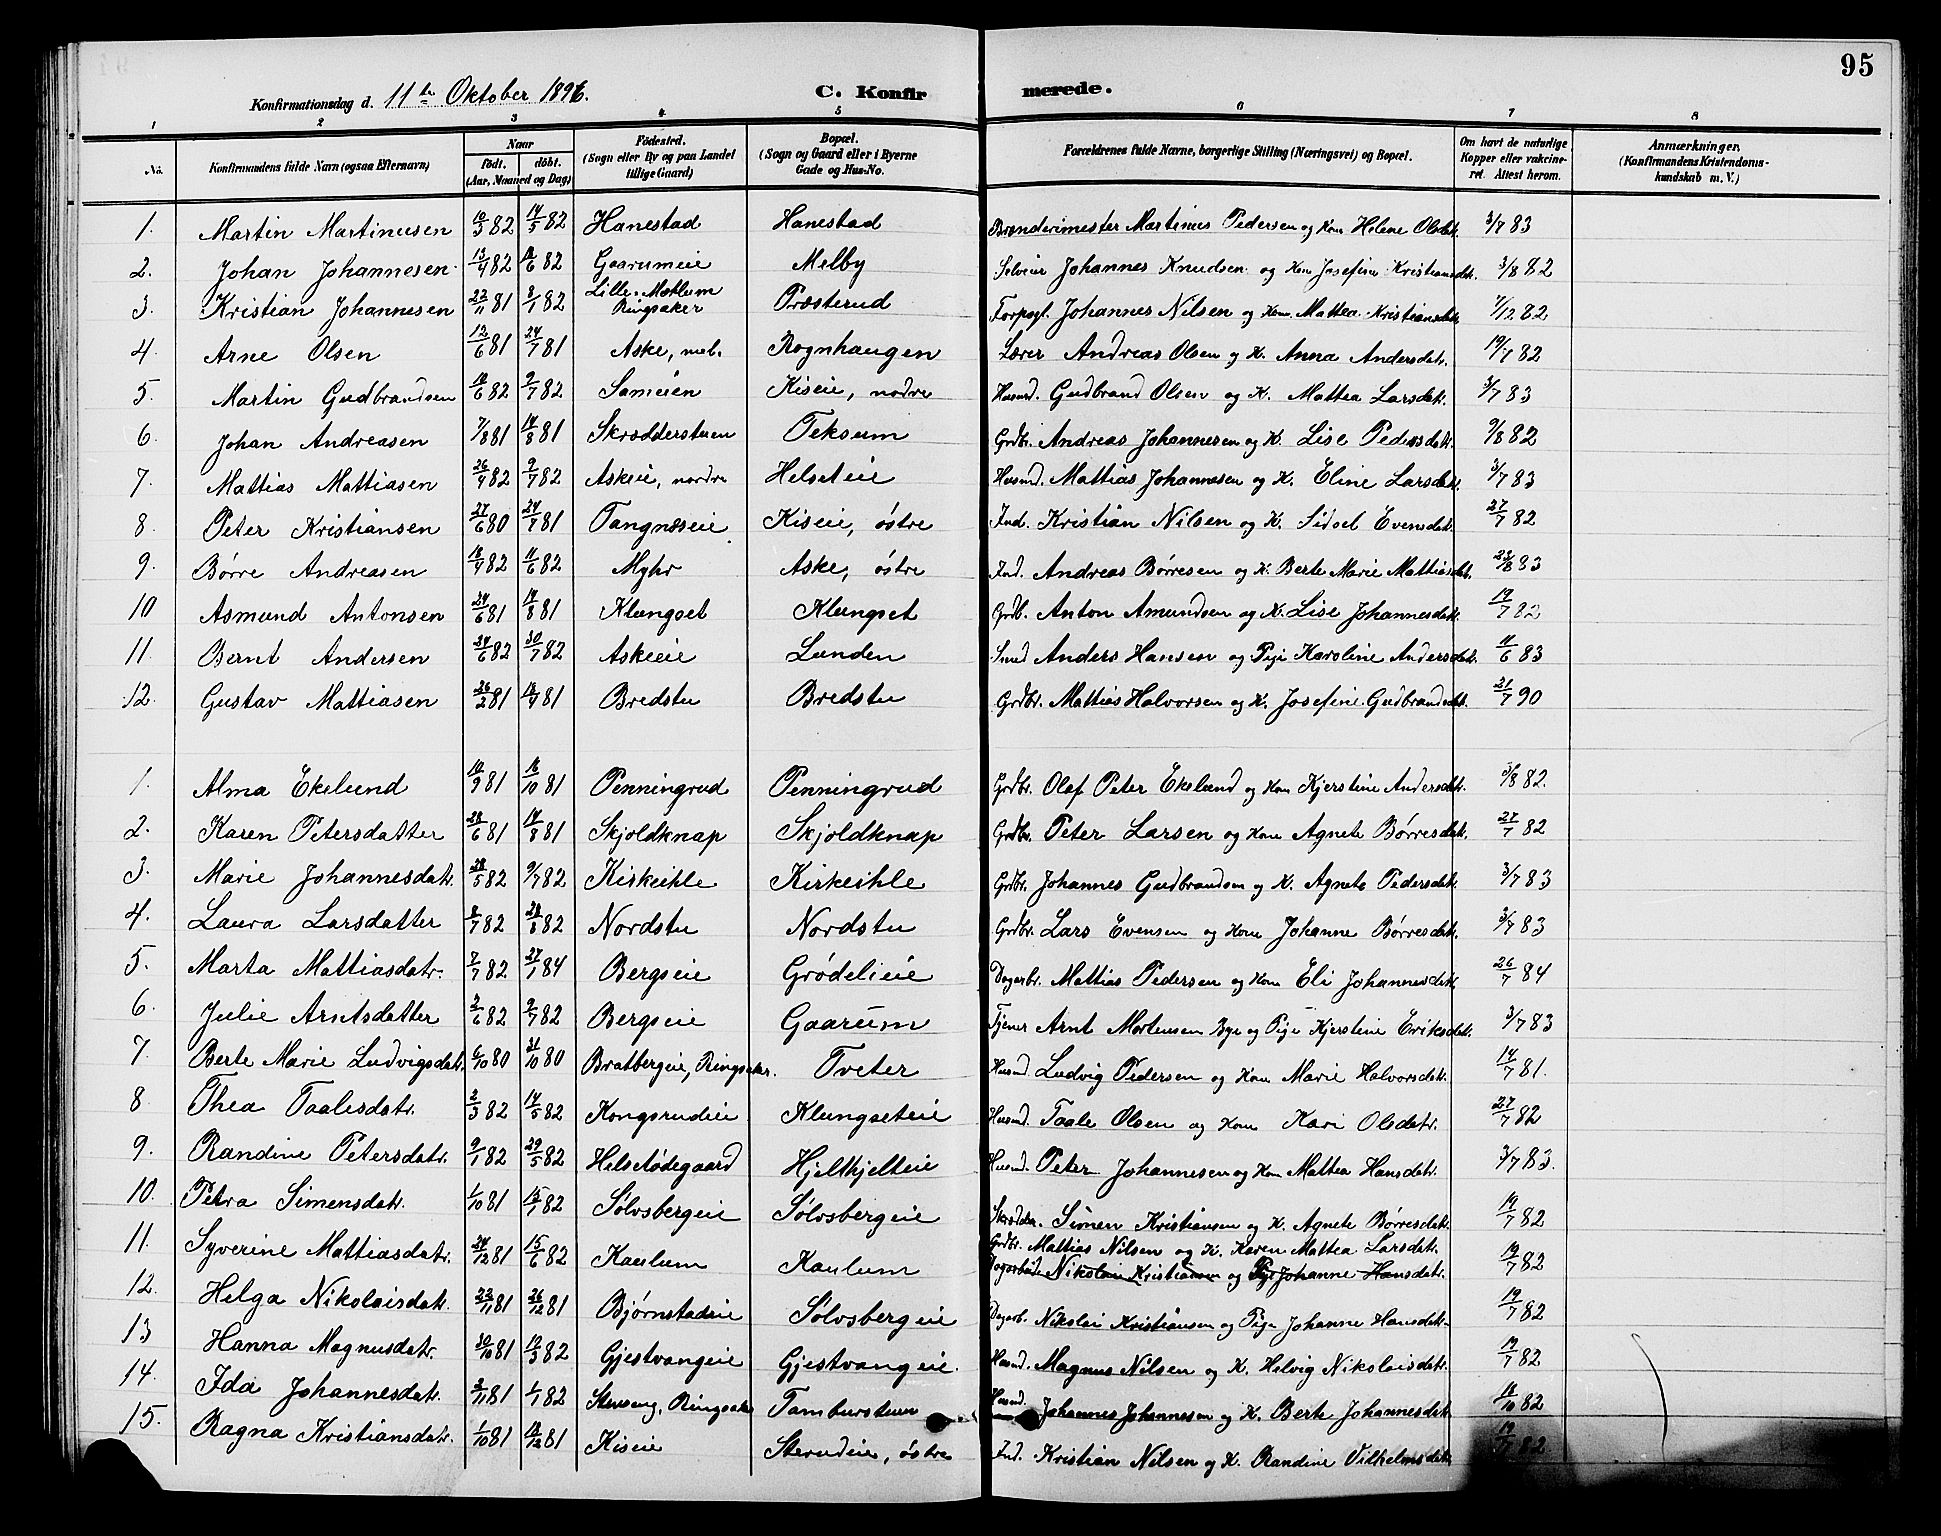 95
Konfirmationsdag d. 11te Oktober 1896. C. Konfirmerede.
1 2 3 4 5 6 7 8
No. Konfirmandens fulde Navn (ogsaa Efternavn) Naar født. døbt. (Aar, Maaned og Dag) Fødested. (Sogn eller By og paa Landet tillige Gaard) Bopæl. (Sogn og Gaard eller i Byerne Gade og Hus-No. Forældrenes fulde Navne, borgerlige Stilling (Næringsvei) og Bopæl. Om havt de naturlige Kopper eller vakcineret. Attest herom. Anmærkninger. (Konfirmandens Kristendomskundskab m. V.)
1. Martin Martinusen 10/3 82 14/5 82 Hanestad Hanestad Brænderimester Martinus Pedersen og Kone Helene Olsdtr. 3/7 83
2. Johan Johannesen 13/4 82 18/6 82 Gaarumeie Melby Selveier Johannes Knudsen og Kone Josefine Kristiansdtr. 3/8 82
3. Kristian Johannesen 22/11 81 8/1 82 Lille-Mætlum Ringsaker Præsterud Forpagt. Johannes Nilsen og Kone Mattea Kristiansdtr. 7/12 82
4. Arne Olsen 12/6 81 24/7 81 Aske, mel. Rognhaugen Lærer Andreas Olsen og K. Anna Andersdatr. 19/7 82
5. Martin Gudbrandsen 10/6 82 9/7 82 Sameien Kiseie, nodre Husmd. Gudbrand Olsen og K. Mattea Larsdatr. 3/7 83
6. Johan Andreasen 7/8 81 14/8 81 Skrædderstuen Teksum Grdbr. Andreas Johannesen og K. Lise Pedersdatr. 9/8 82
7. Mattias Mattiasen 26/4 82 9/7 82 Askeie, nordre Helseteie Husmd. Mattias Johannesen og K. Eline Larsdatr. 3/7 83
8. Peter Kristiansen 27/6 80 24/7 81 Tangnæseie Kiseie, østre Ind. Kristian Nilsen og K. Sidsel Evensdatr. 27/7 82
9. Børre Andreasen 18/4 82 11/6 82 Myhr Aske, østre Ind. Andreas Børresen og K. Berte Marie Mattiasdtr. 28/8 83
10 Asmund Antonsen 24/6 81 14/8 81 Klungset Klungset Grdb. Anton Amundsen og K. Lise Johannesdatr. 19/7 82
11. Bernt Andersen 24/6 82 30/7 82 Askeeie Lunden Smed Anders Hansen og Pige Karoline Andersdatr. 11/6 83
12. Gustav Mattiasen 26/2 81 18/4 81 Bredstu Bredstu Grdbr. Mattias Halvorsen og K. Josefine Gudbrandsdtr. 21/7 90
1. Alma Ekelund 10/9 81 16/10 81 Penningrud Penningrud Grdbr. Olaf Peter Ekelund og Kone Kjerstine Andersdatr. 3/8 82.
2. Karen Petersdatter 28/6 81 14/8 81 Skjoldknap Skjoldknap Grdbr. Peter Larsen og Kone Agnete Børresdatr. 27/7 82
3. Marie Johannesdatr. 28/5 82 9/7 82 Kirkeihle Kirkeihle Grdbr. Johannes Gudbrandsen og K. Agnete Pedersdatr. 3/7 83
4. Laura Larsdatter 8/7 82 28/8 82 Nordstu Nordstu Grdbr. Lars Evensen og Kone Johanne Børresdatr. 3/7 83
5. Marta Mattiasdatr. 7/7 82 27/1 84 Bergseie Grødelieie Dagarbr. Mattias Pedersen og Kone Eli Johannesdatr. 26/7 84
6. Julie Arntsdatter 2/6 82 9/7 82 Bergseie Gaarum Tjener Arnt Mortensen Bye og Pige Kjerstine Eriksdatr. 3/7 83
7. Berte Marie Ludvigsdatr. 6/10 80 31/10 80 Bratbergeie, Ringsaker. Tveter Husmd. Ludvig Pedersen og Kone Marie Halvorsdatr. 14/7 81.
8. Thea Taalesdatr. 2/3 82 14/5 82 Kongsrudeie Klungseteie Husmd. Taale Olsen og Kone Kari Olsdatr. 27/7 82
9. Randine Petersdatr. 9/1 82 29/5 82 Helsetødegaard Hjelkjelteie Husmd. Peter Johannesen og Kone Mattea Hansdatr. 3/7 83.
10. Petra Simensdatr. 1/10 81 15/1 82 Sølvsbergeie Sølvsbergeie Skrædder. Simen Kristiansen og K. Agnete Børresdatr. 19/7 82
11. Syverine Mattiasdatr. 24/12 81 15/6 82 Kaulum Kaulum Grdbr. Mattias Nilsen og K. Karen Mattea Larsdatr. 19/7 82
Dagarbeider Nikolai Kristiansen og Pige Johanne Hansdatr.
12. Helga Nikolaisdatr. 22/11 81 26/12 81 Bjørnstadeie Sølvsbergeie Dagarb. Nikolai Kristiansen og Pige Johanne Hansdatr. 19/7 82
13 Hanna Magnusdatr. 30/10 81 19/3 82 Gjestvangeie Gjestvangeie. Husmd. Magnus Nilsen og K. Helvig Nikolaisdatr. 19/7 82
14. Ida Johannesdatr. 3/11 81 1/1 82 Ringsaker Tamburstuen Husmd. Johannes Johannesen og K. Berte Johannesdatr. 18/10 82
15. Ragna Kristiansdatr. 1/10 81 18/12 81 Kiseie Sterudeie, østre Ind. Kristian Nilsen og K. Randine Vilhelmsdatr. 19/7 82